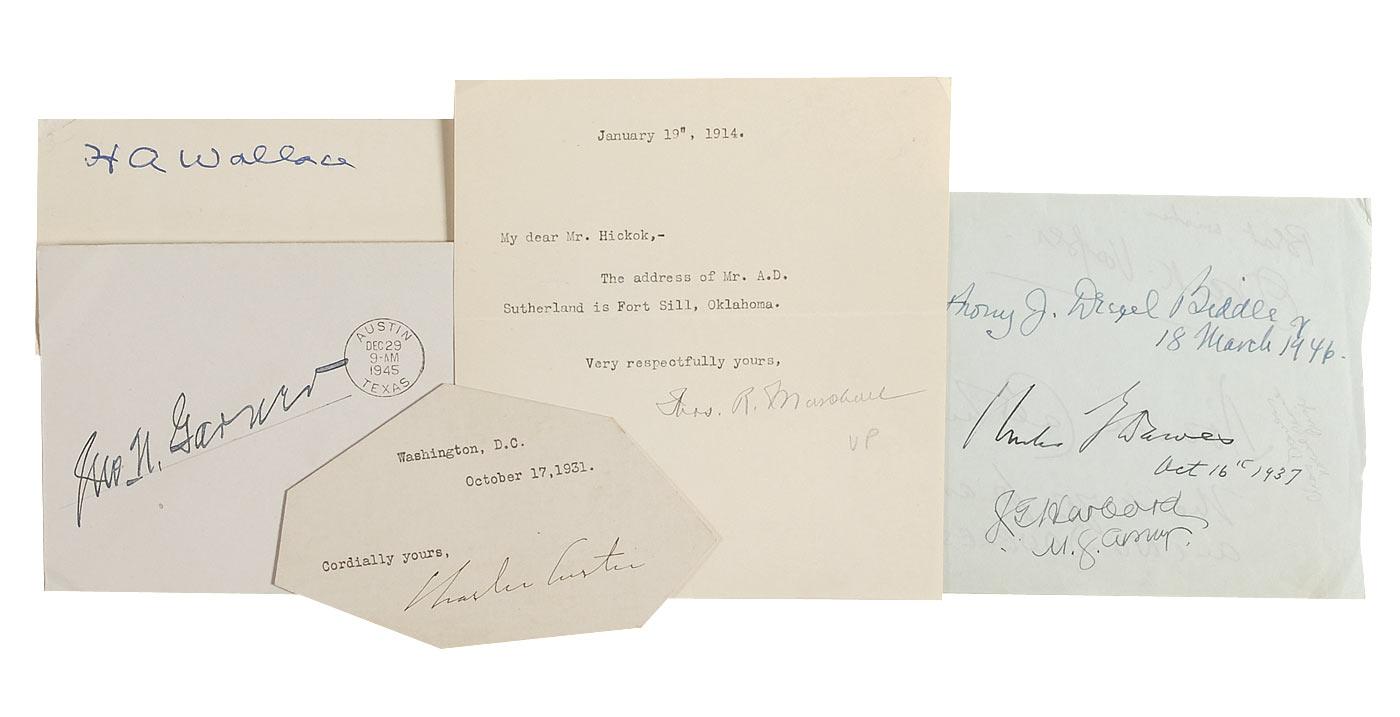 H A Wallace
Jno. N. Garner
AUSTIN
DEC 29
9-AM
1945
TEXAS
Washington, D.C.
October 17, 1931.
Cordially yours,
Charles Curtis
January 19", 1914.
My dear Mr. Hickok,-
The address of Mr. A.D.
Sutherland is Fort Sill, Oklahoma.
Very respectfully yours,
Thos. R. Marshall
VP
thony J. Drexel Biddle Jr
18 March 1946.
Charles G Dawes
Oct 16th 1937
J G Harbord
M. G. Army.
Best wishes